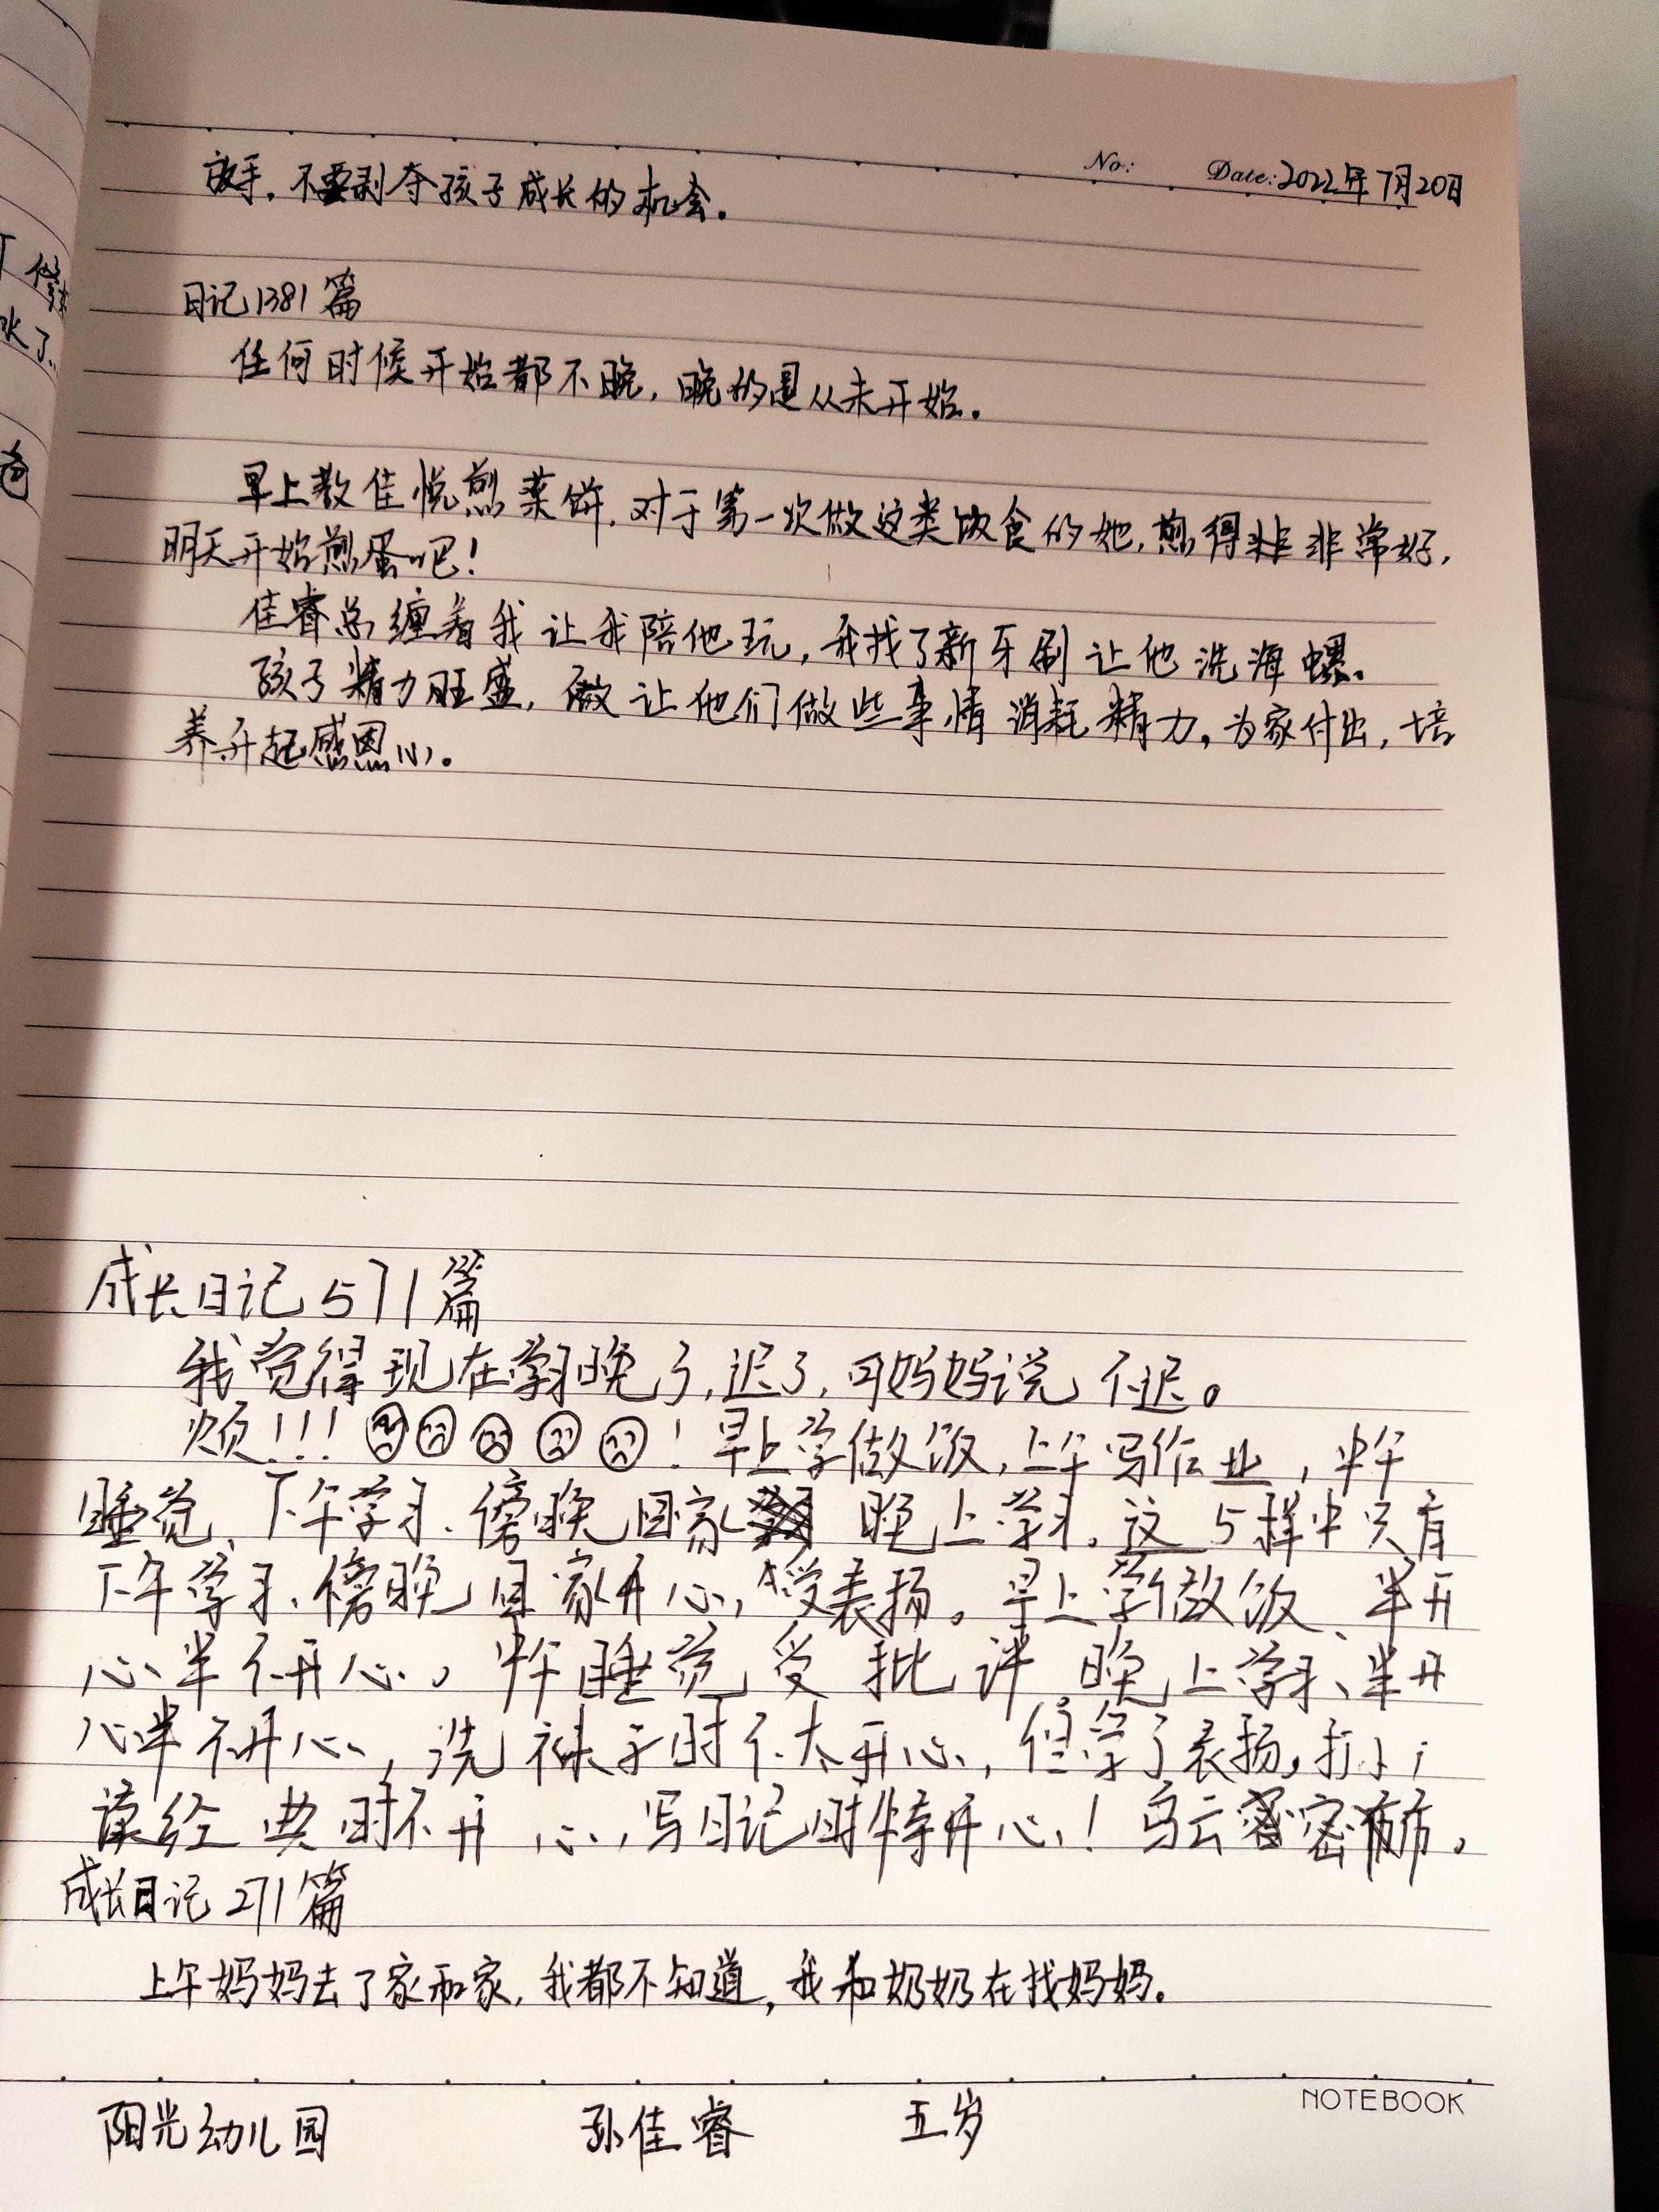 No: Date: 2022年7月20日
放手。不要剥夺孩子成长的机会。
日记1381篇
任何时候开始都不晚，晚的是从未开始。
早上教佳悦煎菜饼，对于第一次做这类饮食的她，煎得非非常好，
明天开始煎蛋吧！
佳睿总缠着我让我陪他玩，我找了新牙刷让他洗海螺。
孩子精力旺盛，做让他们做些事情消耗精力。为家付出，培
养升起感恩心。
成长日记571篇
我觉得现在学习晚了，迟了，可妈妈说不迟。
烦！！！！早上学做饭，上午写作业，中午
睡觉、下午学习、傍晚回家 晚上学习。这5样中只有
下午学习、傍晚回家开心，受表扬。早上学做饭、半开
心半不开心。中午睡觉受批评 晚上学习、半开
心半不开心，洗袜子时不太开心，但学了表扬，
读经典时不开心，写日记时特开心！乌云密密布布。
成长日记271篇
上午妈妈去了家和家，我都不知道，我和奶奶在找妈妈。
NOTEBOOK
阳光幼儿园 孙佳睿 五岁